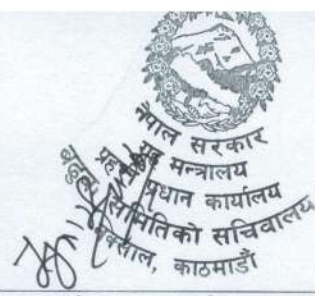 नेपाल सरकार
गृह मन्त्रालय
प्रधान कार्यालय
समितिको सचिवालय
नक्साल, काठमाडौं